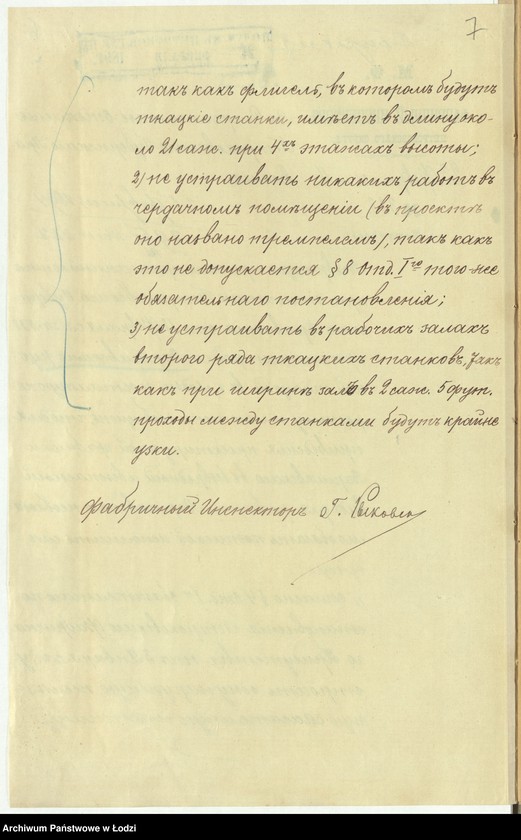 7
такъ какъ флигель, въ которомъ будутъ
ткацкіе станки, имѣетъ въ длину око-
ло 21 саж. при 4хъ этажахъ высоты;
2) не устраивать никакихъ работъ въ
чердачномъ помѣщеніи (въ проектѣ
оно названо тремпелемъ), такъ какъ
это не допускается § 8 отд. Iго того-же
обязательнаго постановленія;
3) не устраивать въ рабочихъ залахъ
второго ряда ткацкихъ станковъ, такъ
какъ при ширинѣ залъ въ 2 саж. 5 фут.
проходы между станками будутъ крайне
узки.
Фабричный Инспекторъ Г.
Archiwum Państwowe w Łodzi